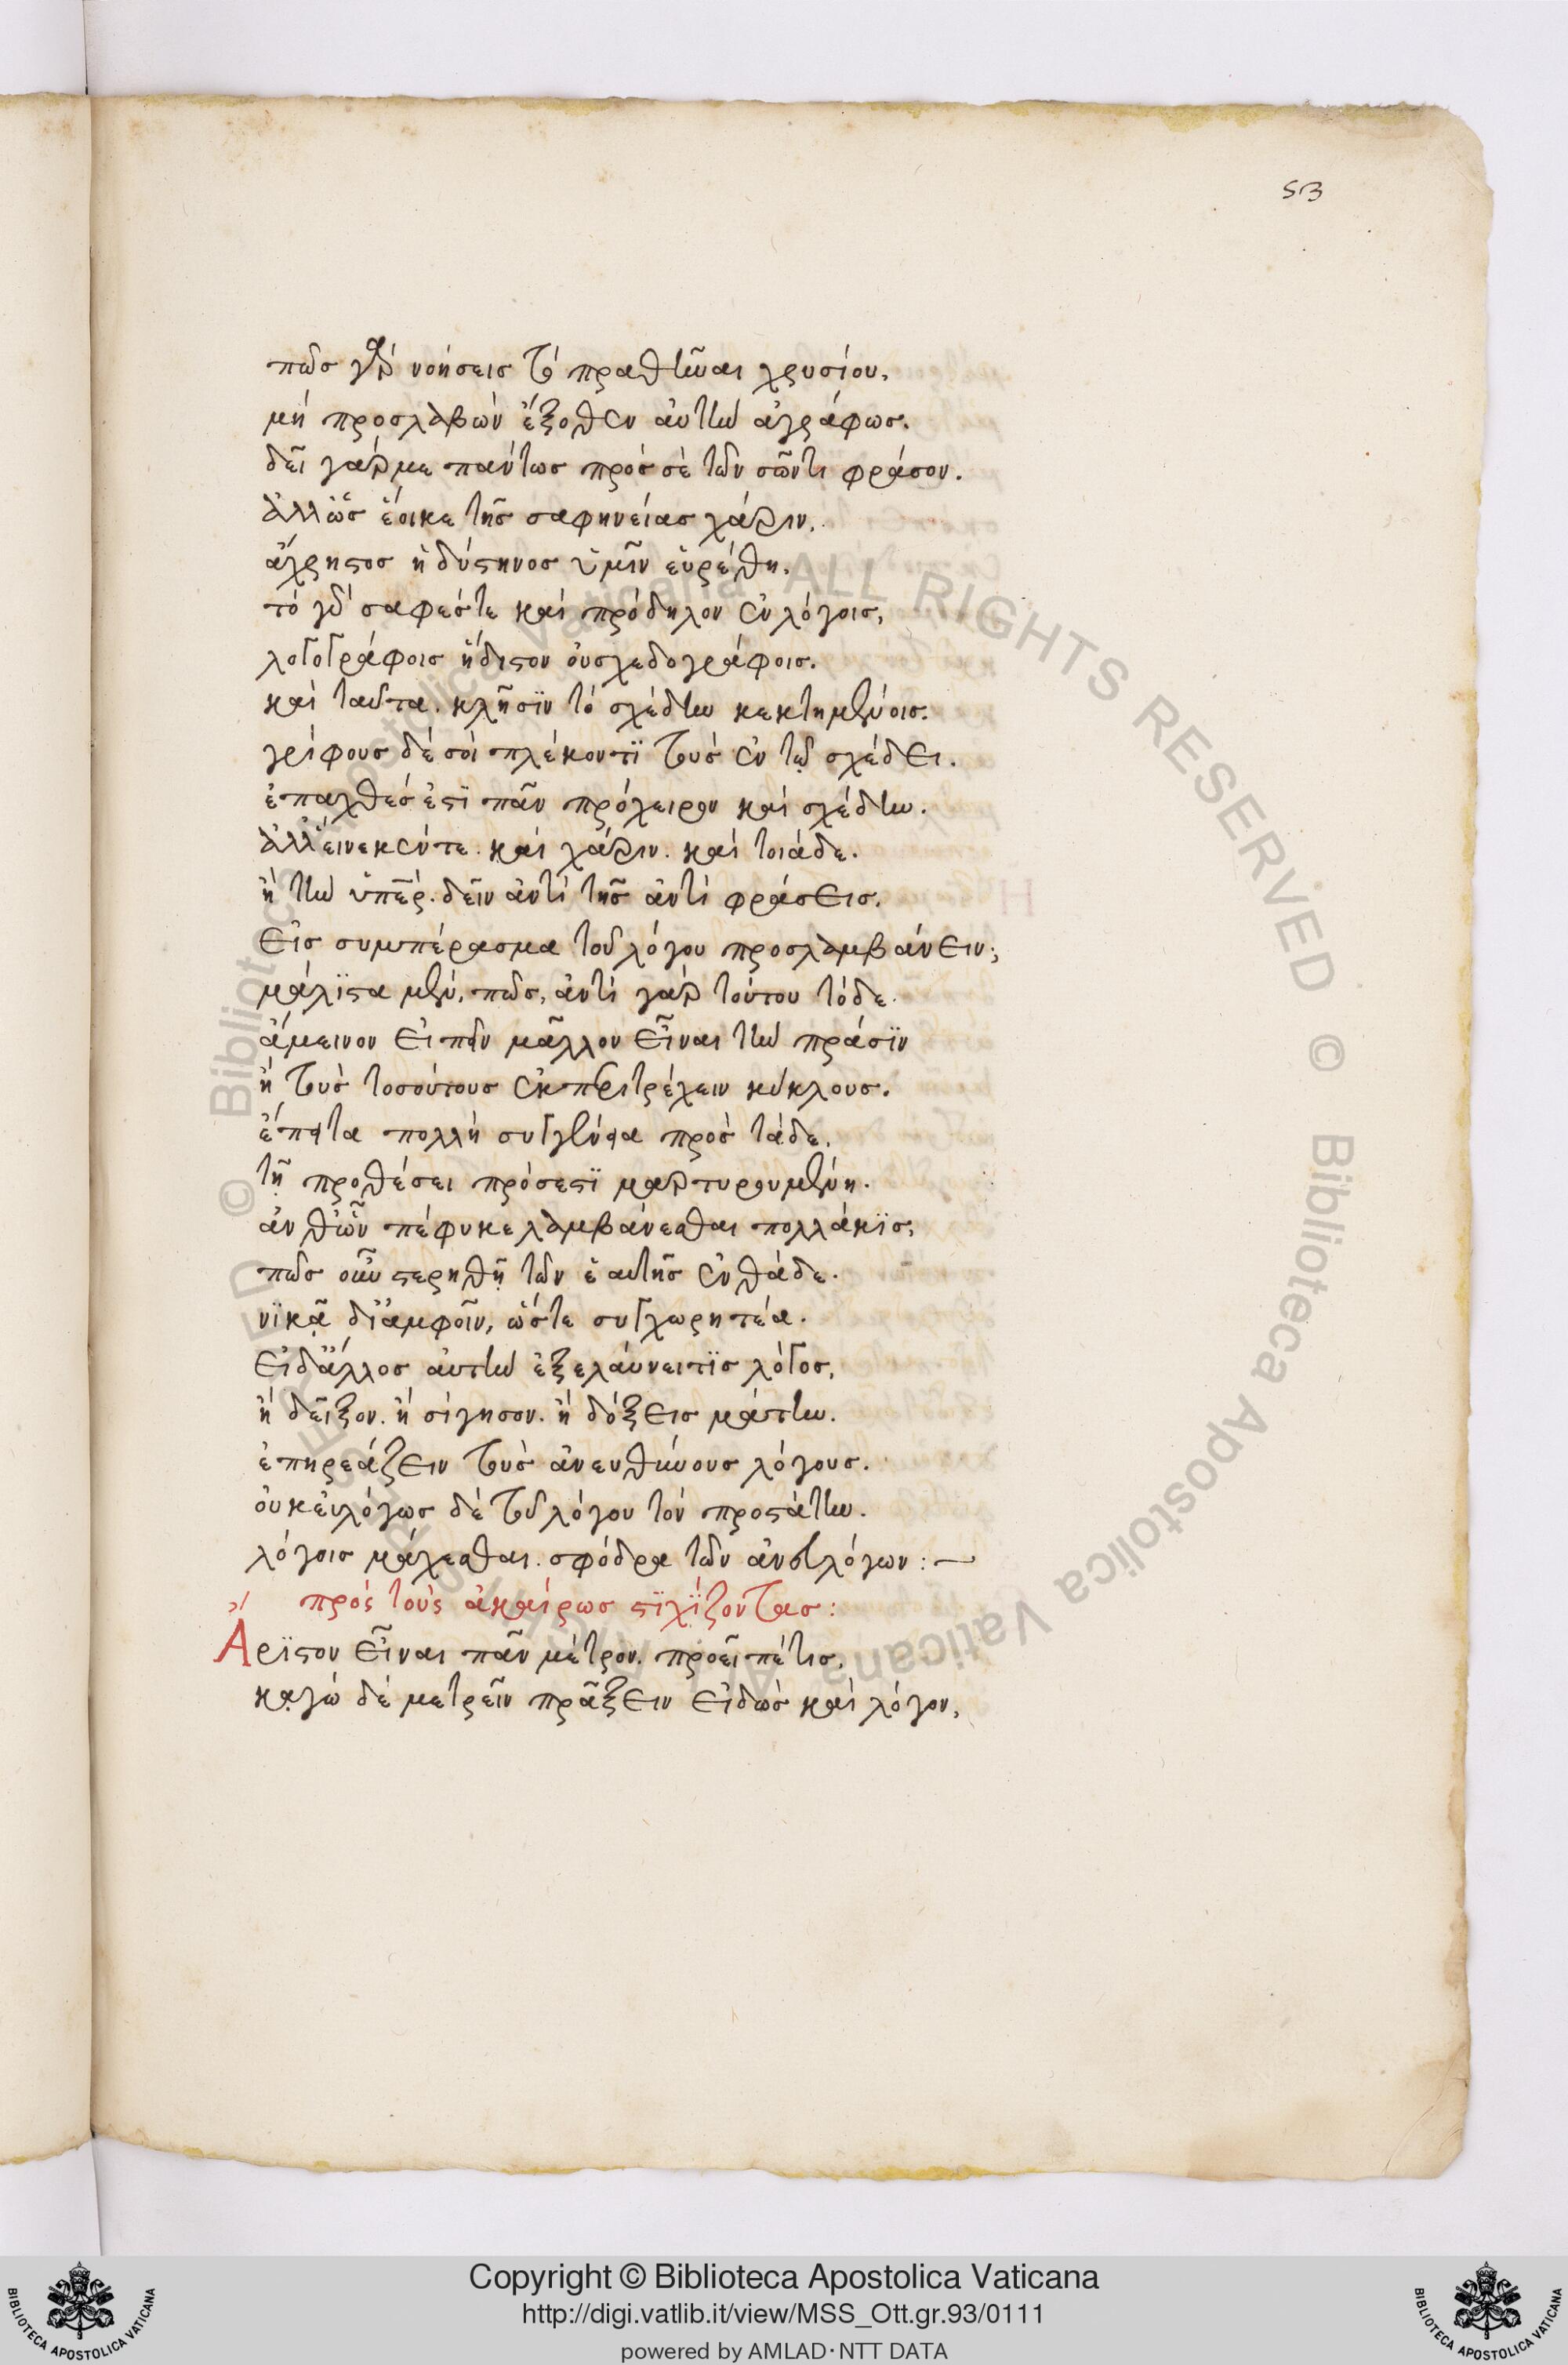 53
πῶς γὰρ νοήσεις τὸ πραθῆναι χρυσίου,
μὴ προσλαβὼν ἔξοθεν αὐτὴν ἀγράφως.
δεῖ γάρ με πάντως πρὸς σὲ τῶν σῶν τι φράσον.
ἀλλ' ὡς ἔοικε τῆς σαφηνείας χάριν,
ἄχρηστος ἡ δύστηνος ὑμῖν εὑρέθη.
τὸ γὰρ σαφέστε καὶ πρόδηλον ἐν λόγοις,
λογογράφοις ἥδιστον οὐ σχεδογράφοις.
καὶ ταῦτα. κλῆσιν τὸ σχέδην κεκτημένοις.
γρίφους δέ σοι πλέκοντι τοὺς ἐν τῷ σχέδει.
ἐπαχθές ἐστι πᾶν πρόχειρον καὶ σχέδην.
ἀλλ' εἵνεκέν τε. καὶ χάριν. καὶ τοιάδε.
ἢ τὴν ὑπὲρ. δεῖν ἀντὶ τῆς ἀντὶ φράσεις.
εἰς συμπέρασμα τοῦ λόγου προσλαμβάνειν;
μάλιστα μέν, πῶς, ἀντὶ γὰρ τούτου τόδε.
ἄμεινον εἰπεῖν μᾶλλον εἶναι τὴν πράσιν
ἢ τοὺς τοσούτους ἐκπεριτρέχειν κύκλους.
ἔπειτα πολλὴ συγγένεια πρὸς τάδε,
τῇ προθέσει πρόσεστι μαρτυρουμένη.
ἀνθ' ὧν πέφυκε λαμβάνεσθαι πολλάκις,
πῶς οὖν στερηθῇ τῶν ἑαυτῆς ἐνθάδε.
νικᾷ δι' ἀμφοῖν, ὥστε συγχωρητέα.
εἰ δ' ἄλλος αὐτὴν ἐξελαύνει τις λόγος,
ἢ δεῖξον. ἢ σίγησον. ἢ δόξεις μάτην.
ἐπηρεάζειν τοὺς ἀνευθύνους λόγους.
οὐκ εὐλόγως δὲ τοῦ λόγου τὸν προστάτην.
λόγοις μάχεσθαι. σφόδρα τῶν ἀντιλόγων :—
πρὸς τοὺς ἀκαίρως στιχίζοντας :
Ἄριστον εἶναι πᾶν μέτρον. προεῖπέ τις,
κἀγὼ δὲ μετρεῖν πρᾶξειν εἰδὼς καὶ λόγον,
Copyright © Biblioteca Apostolica Vaticana
http://digi.vatlib.it/view/MSS_Ott.gr.93/0111
powered by AMLAD·NTT DATA